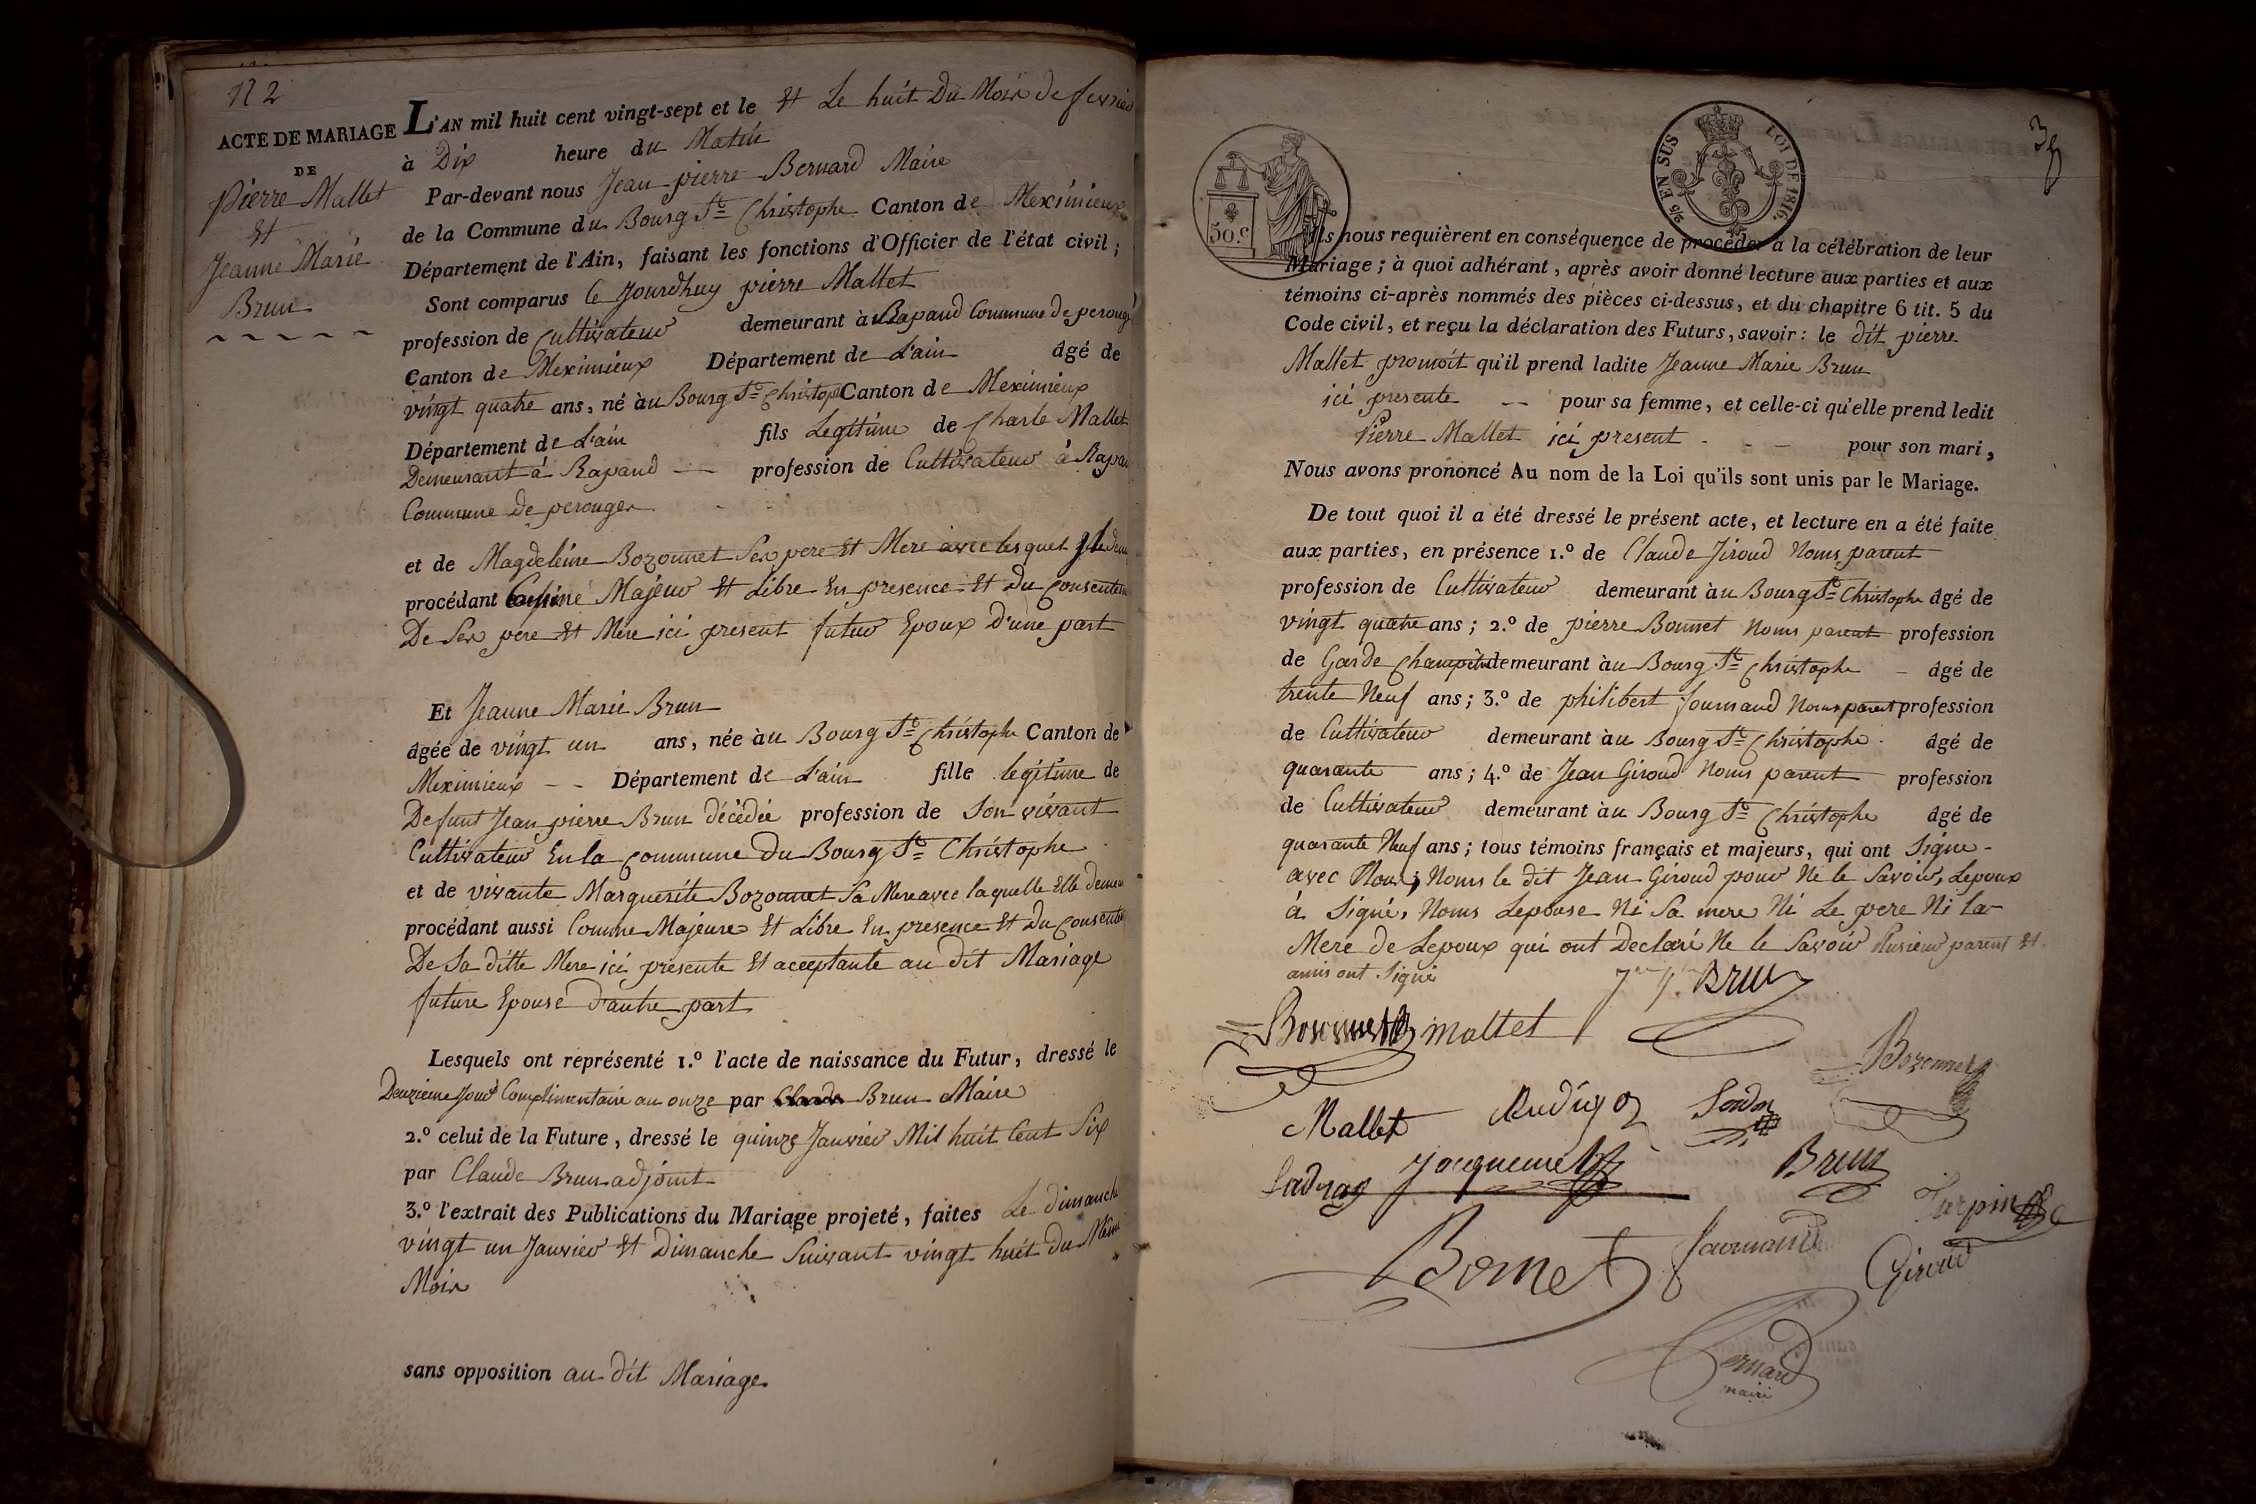 N 2
ACTE DE MARIAGE
DE
Pierre Mallet
Et
Jeanne Marie
Brun
L'AN mil huit cent vingt-sept et le Et Le huit Du Mois de fevrier
à Dix heure du Matin
Par-devant nous Jean pierre Bernard Maire
de la Commune du Bourg St Christophe Canton de Meximieux
Département de l'Ain, faisant les fonctions d'Officier de l'état civil ;
Sont comparus le Jourdhuy pierre Mallet
profession de Cultivateur demeurant à Rapand Commune de perouge
Canton de Meximieux Département de L'ain âgé de
vingt quatre ans, né àu Bourg St Christop Canton de Meximieux
Département de L'ain fils Legitime de Charle Mallet
Demeurant à Rapand profession de Cultivateur à Rapan
Commune de perouges
et de Magdeleine Bozonnet Ses pere Et Mere avec lesquel
procédant Comme Majeur Et Libre En presence Et Du Consentem
De Ses pere Et Mere ici present futur Epoux D'une part
Et Jeanne Marie Brun
âgée de vingt un ans, née àu Bourg St Christophe Canton de
Meximieux - - Département de L'ain fille legitime de
Defunt Jean pierre Brun décédée profession de Son vivant
Cultivateur En la Commune Du Bourg St Christophe
et de vivante Marguerite Bozonnet Sa Mere avec laquelle Elle demeu
procédant aussi Comme Majeure Et Libre En presence Et Du Consente
De Sa ditte Mere ici presente Et acceptante au dit Mariage
future Epouse D'autre part
Lesquels ont représenté 1.º l'acte de naissance du Futur, dressé le
Deuzieme Jour Complimentaire an onze par Claude Brun Maire
2.º celui de la Future, dressé le quinze Janvier Mil huit Cent Six
par Claude Brun adjoint
3.º l'extrait des Publications du Mariage projeté, faites Le dimanche
vingt un Janvier Et Dimanche Suivant vingt huit du Même
Mois
sans opposition au dit Mariage
39
50.c
EN SUS
LOI DE 1816.
Ils nous requièrent en conséquence de procéder à la célébration de leur
Mariage ; à quoi adhérant, après avoir donné lecture aux parties et aux
témoins ci-après nommés des pièces ci-dessus, et du chapitre 6 tit. 5 du
Code civil, et reçu la déclaration des Futurs, savoir : le dit pierre
Mallet promoit qu'il prend ladite Jeanne Marie Brun
ici presente -- pour sa femme, et celle-ci qu'elle prend ledit
Pierre Mallet ici present - - - pour son mari,
Nous avons prononcé Au nom de la Loi qu'ils sont unis par le Mariage.
De tout quoi il a été dressé le présent acte, et lecture en a été faite
aux parties, en présence 1.º de Claude Jiroud Noms parent
profession de Cultivateur demeurant àu Bourg St Christophe âgé de
vingt quatre ans ; 2.º de pierre Bonnet Noms parent profession
de Garde Champêtre demeurant àu Bourg St Christophe - âgé de
trente Neuf ans ; 3.º de philibert Journaud Noms parent profession
de Cultivateur demeurant àu Bourg St Christophe âgé de
quarante ans ; 4.º de Jean Giroud Noms parent profession
de Cultivateur demeurant àu Bourg St Christophe âgé de
quarante Neuf ans ; tous témoins français et majeurs, qui ont Signe -
avec Nous ; Noms le dit Jean Giroud pour Ne le Savoir, Lepoux
à Signé, Noms Lepouse Ni Sa mere Ni Le pere Ni la
Mere de Lepoux qui ont Declaré Ne le Savoir Plusieur parent Et
amis ont Signé
Brun
mallet
Bozonnet
Mallet
Jacquemet
Brun
Turpin
Bonnet
Journaud
Giroud
Bernard
maire